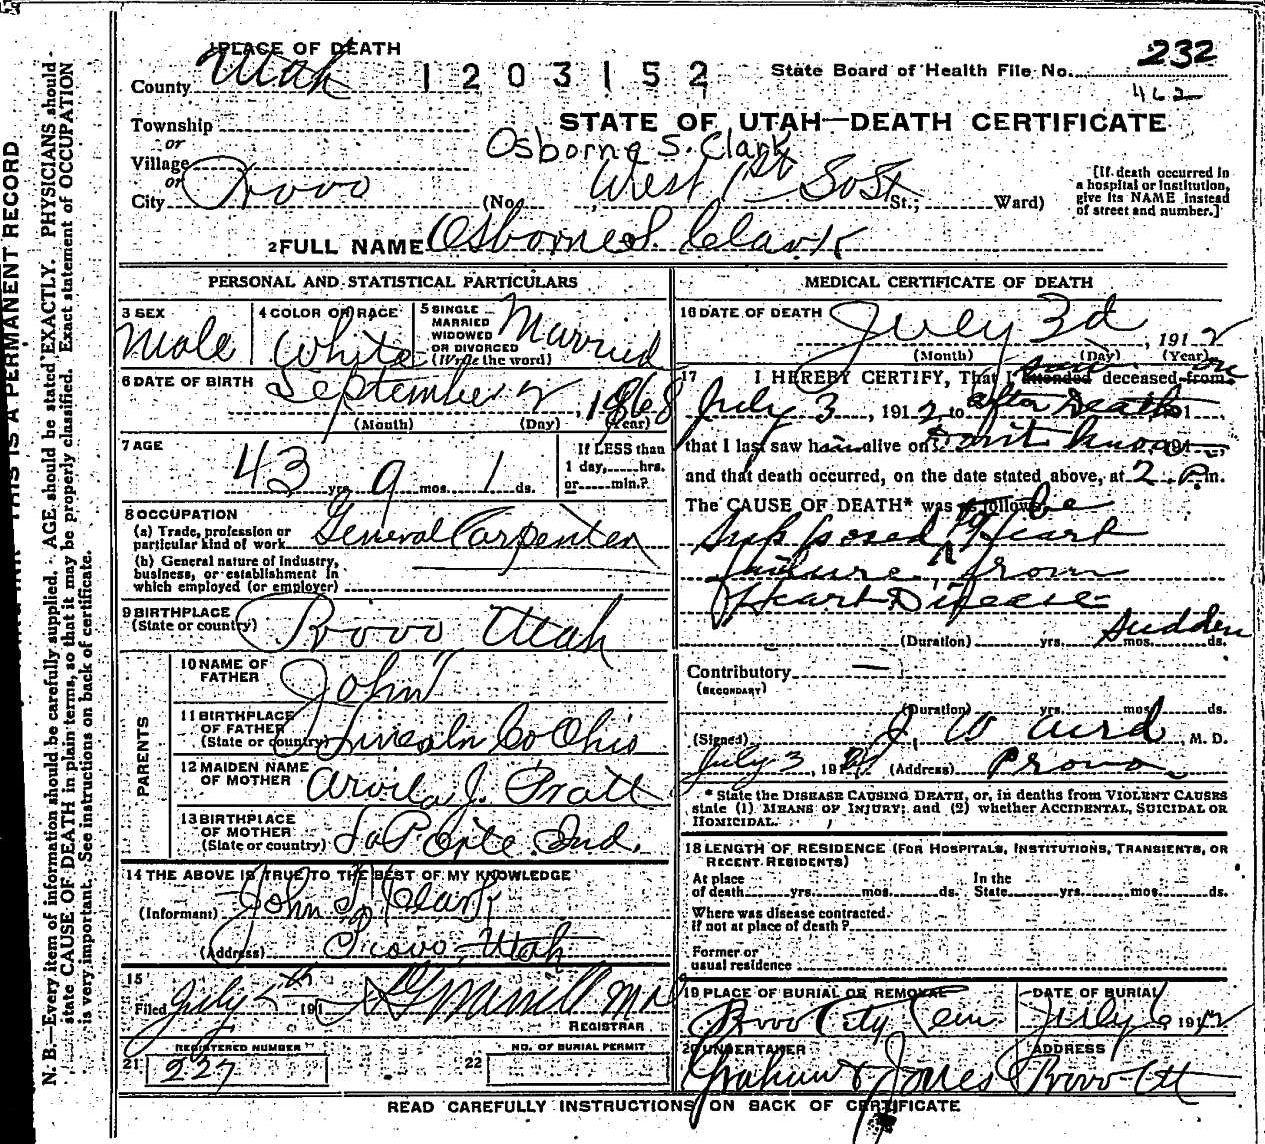 1 PLACE OF DEATH
County Utah
1203152
State Board of Health File No. 232
462
Township
or
Village
or
City Provo
STATE OF UTAH—DEATH CERTIFICATE
Osborne S. Clark
(No. , West 1st So St St.; Ward)
[If death occurred in
a hospital or institution,
give its NAME instead
of street and number.]
2 FULL NAME Osborne S. Clark
PERSONAL AND STATISTICAL PARTICULARS
3 SEX
Male
4 COLOR OR RACE
White
5 SINGLE
MARRIED
WIDOWED
OR DIVORCED
(Write the word)
Married
6 DATE OF BIRTH
September 2, 1868
(Month) (Day) (Year)
7 AGE
43 yrs. 9 mos. 1 ds.
If LESS than
1 day, hrs.
or min.?
8 OCCUPATION
(a) Trade, profession or
particular kind of work General Carpenter
(b) General nature of industry,
business, or establishment in
which employed (or employer)
9 BIRTHPLACE
(State or country) Provo Utah
PARENTS
10 NAME OF
FATHER John
11 BIRTHPLACE
OF FATHER
(State or country) Lincoln Co Ohio
12 MAIDEN NAME
OF MOTHER Arvila J. Pratt
13 BIRTHPLACE
OF MOTHER
(State or country) La Porte Ind.
14 THE ABOVE IS TRUE TO THE BEST OF MY KNOWLEDGE
(Informant) John T. Clark
(Address) Provo, Utah
15
Filed July 5th 191
REGISTRAR
REGISTERED NUMBER
21 227
NO. OF BURIAL PERMIT
22
MEDICAL CERTIFICATE OF DEATH
16 DATE OF DEATH
July 3d, 1912
(Month) (Day) (Year)
17 I HEREBY CERTIFY, That I attended saw deceased from on
July 3, 1912 to after Death 191
that I last saw him alive on Don't know 191
and that death occurred, on the date stated above, at 2 P.m.
The CAUSE OF DEATH* was as follows:
Supposed to be Heart
failure, from
Heart Disease
(Duration) yrs. mos. ds. Sudden
Contributory —
(SECONDARY)
(Duration) yrs. mos. ds.
(Signed) J. W. Aird, M. D.
July 3, 191 (Address) Provo
* State the DISEASE CAUSING DEATH, or, in deaths from VIOLENT CAUSES
state (1) MEANS OF INJURY; and (2) whether ACCIDENTAL, SUICIDAL OR
HOMICIDAL.
18 LENGTH OF RESIDENCE (FOR HOSPITALS, INSTITUTIONS, TRANSIENTS, OR
RECENT RESIDENTS)
At place
of death yrs. mos. ds.
In the
State yrs. mos. ds.
Where was disease contracted
If not at place of death?
Former or
usual residence
19 PLACE OF BURIAL OR REMOVAL
Provo City Cem.
DATE OF BURIAL
July 6 1912
20 UNDERTAKER
Graham & Jones
ADDRESS
Provo Ut
READ CAREFULLY INSTRUCTIONS ON BACK OF CERTIFICATE
THIS IS A PERMANENT RECORD
N. B.—Every item of information should be carefully supplied. AGE should be stated EXACTLY. PHYSICIANS should
state CAUSE OF DEATH in plain terms, so that it may be properly classified. Exact statement of OCCUPATION
is very important. See instructions on back of certificate.